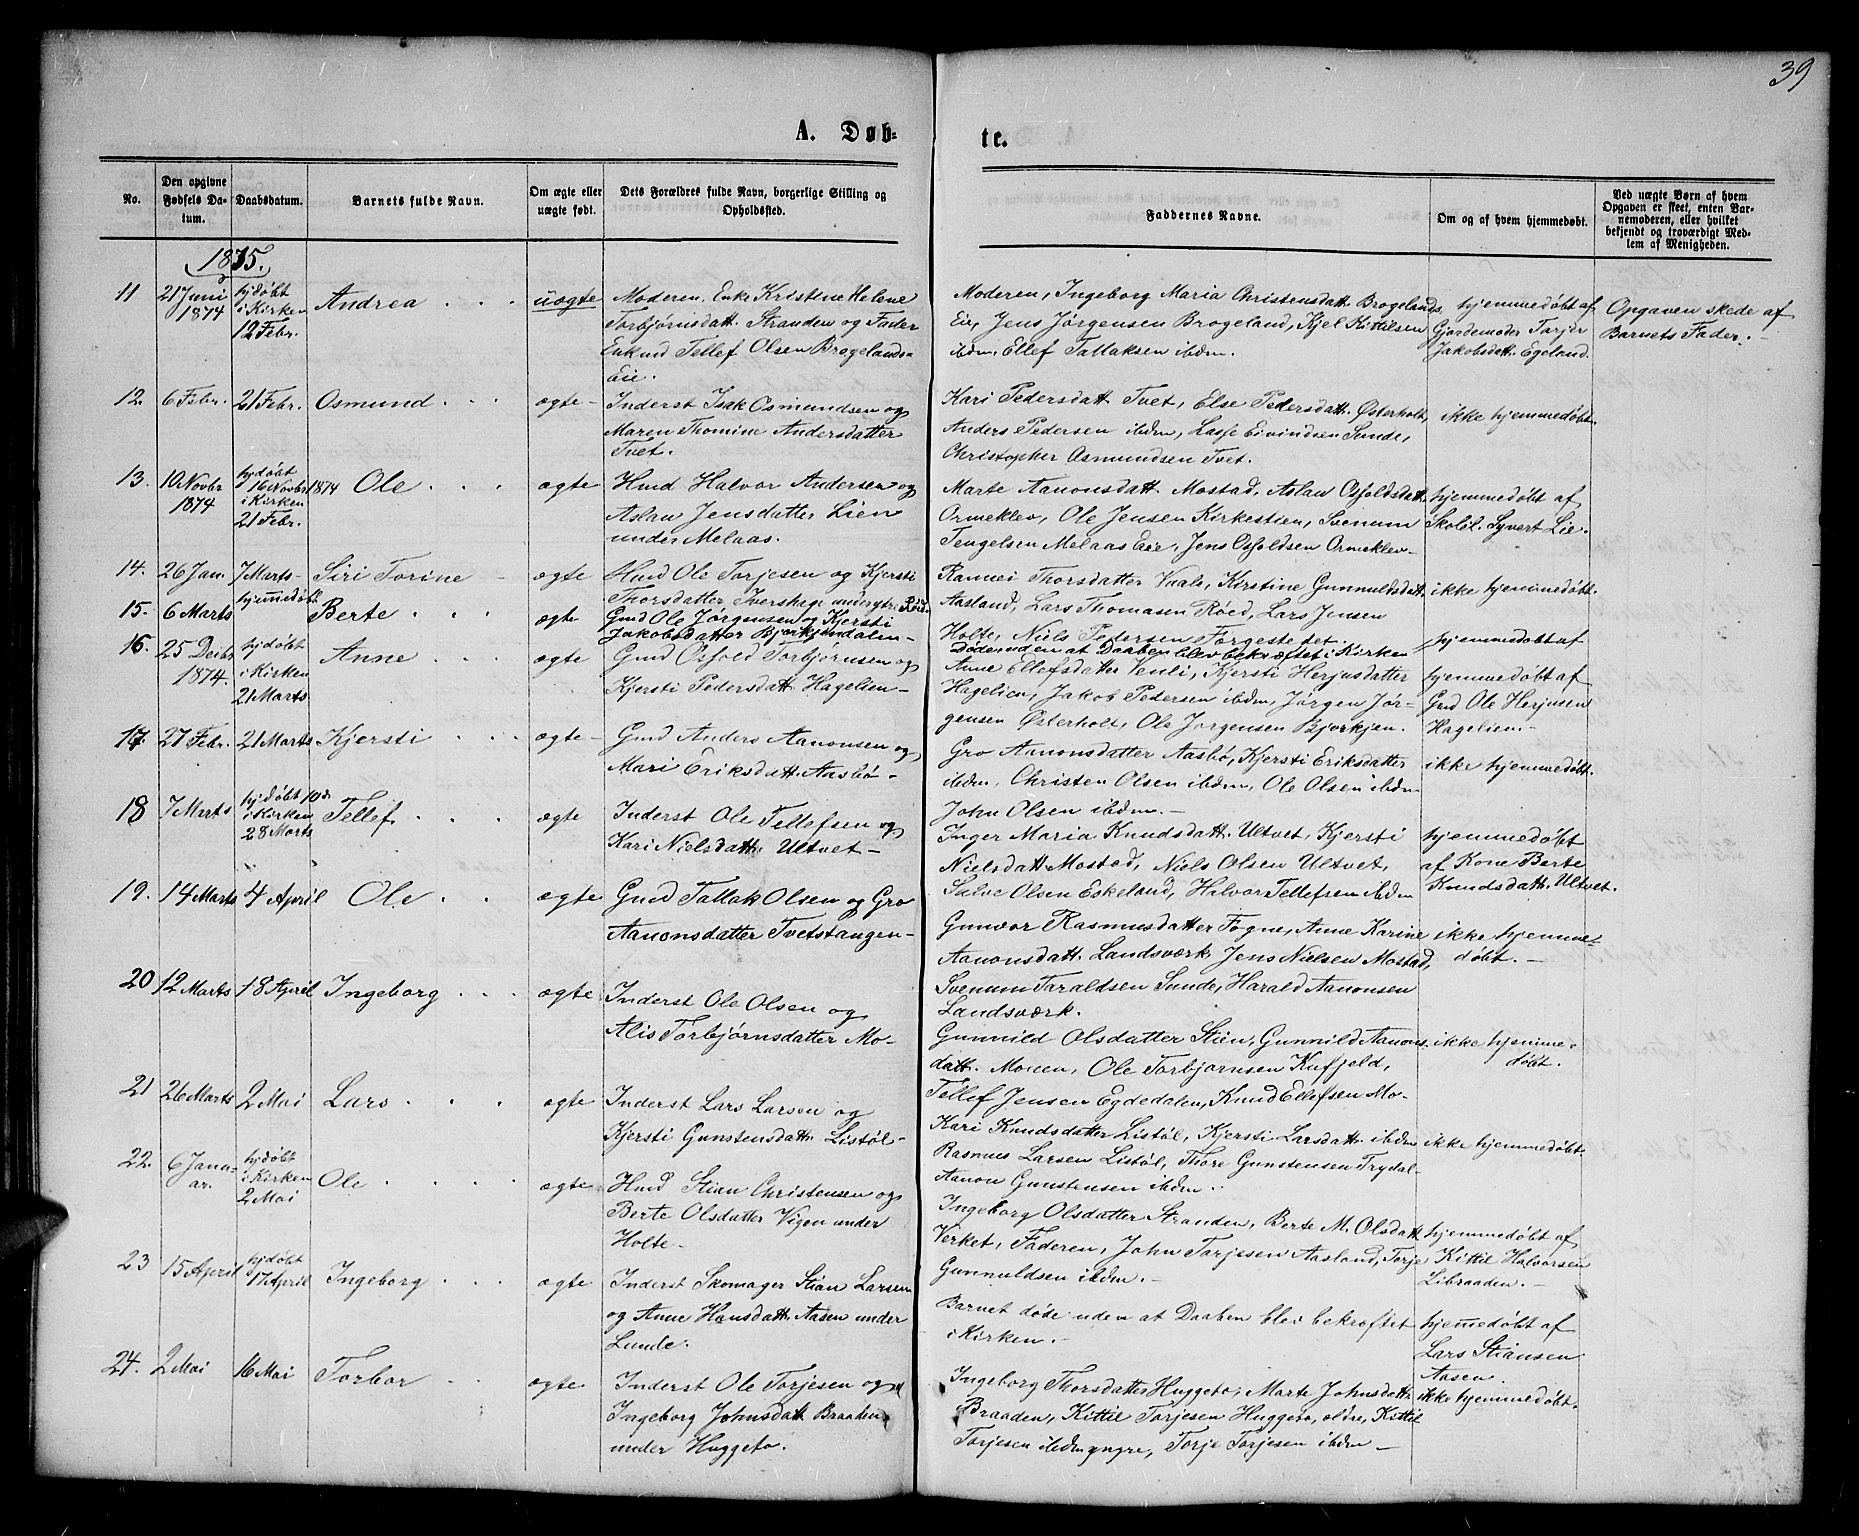 39
A. Døb-
te.
No.
Den opgivne Fødsels Datum.
Daabsdatum.
Barnets fulde Navn.
Om ægte eller uægte født.
Dets Forældres fulde Navn, borgerlige Stilling og Opholdssted.
Faddernes Navne.
Om og af hvem hjemmedøbt.
Ved uægte Børn af hvem Opgaven er skeet, enten Barnemoderen, eller hvilket bekjendt og troværdigt Medlem af Menigheden.
1875.
11
21 Juni
1874
hjdøbt
i Kirken
12 Febr.
Andrea
uægte
Moderen. Enke Kristine Helene
Torbjørnsdatt. Stranden og Fader
Enkmd Tellef Olsen Brogelands-
Eie.
Moderen, Ingeborg Maria Christensdatt. Brogelands
Eie, Jens Jørgensen Brogeland, Kjel Kittilsen
ibdm, Ellef Tallaksen ibdm.
hjemmedøbt af
Gjordemoder Torjer
Jakobsdatt. Egeland.
Opgaven skede af
Barnets Fader.
12.
6 Febr.
21 Febr.
Osmund
ægte
Inderst Isak Osmundsen og
Maren Thomine Andersdatter
Tvet.
Kari Pedersdatt Tvet, Else Pedersdatt. Østerholt,
Anders Pedersen ibdm, Lasse Eivindsen Sunde,
Christopher Osmundsen Tvet.
ikke hjemmedøbt.
13.
10 Novbr
1874
hjdøbt
16 Novbr 1874
i Kirken
21 Febr.
Ole
ægte
Hmd Halvor Andersen og
Aslau Jensdatter Lien
under Melaas.
Marte Aanonsdatt. Mostad, Aslau Osfoldsdatt.
Ormeklev, Ole Jensen Kirkestien, Svenum
Tengelsen Melaas Eie, Jens Osfoldsen Ormeklev
hjemmedøbt af
Skolel. Syvert Lie.
14.
26 Jan.
7 Marts
Siri Torine
ægte
Hmd Ole Torjesen og Kjersti
Thorsdatter Ivershage under ytr. Røed
Rannei Thorsdatter Vaals, Kirstine Gunnuldsdatt.
Aasland, Lars Thomasen Røed, Lars Jensen
Holte, Niels Pedersen Torgestedet.
ikke hjemmedøbt.
15.
6 Marts
hjemmedøbt
Berte
ægte
Gmd Ole Jørgensen og Kjersti
Jakobsdatter Bjorkjendalen
Døde uden at Daaben blev bekræftet i Kirken
hjemmedøbt af
16.
25 Decbr
1874.
hjdøbt
i Kirken
21 Marts
Anne
ægte
Gmd Osfold Torbjørnsen og
Kjersti Pedersdatt. Hagelien
Anne Ellefsdatter Venli, Kjersti Herjusdatter
Hagelien, Jakob Pedersen ibdm, Jørgen Jør-
gensen Østerholt, Ole Jørgensen Bjorkjen.
hjemmedøbt af
Gmd Ole Herjusen
Hagelien.
17.
27 Febr.
21 Marts
Kjersti
ægte
Gmd Anders Aanonsen og
Mari Eriksdatt. Aasbø
Gro Aanonsdatter Aasbø, Kjersti Eriksdatter
ibdm, Christen Olsen ibdm, Ole Olsen ibdm
John Olsen ibdm.
ikke hjemmedøbt.
18
7 Marts
hjdøbt 10de
i Kirken
28 Marts
Tellef
ægte
Inderst Ole Tellefsen og
Kari Nielsdatt. Ultvet
Inger Maria Knudsdatt. Ultvet, Kjersti
Nielsdatt. Mostad, Niels Olsen Ultvet,
Salve Olsen Eskeland, Halvor Tellefsen ibdm
hjemmedøbt
af Kone Berte
Knudsdatt. Ultvet.
19.
14 Marts
4 April
Ole
ægte
Gmd Tallak Olsen og Gro
Aanonsdatter Tvetstangen
Gunvor Rasmusdatter Fogne, Anne Karine
Aanonsdatt. Landsværk, Jens Nielsen Mostad,
Svenum Taraldsen Sunde, Harald Aanonsen
Landsværk.
ikke hjemme-
døbt.
20
12 Marts
18 April
Ingeborg
ægte
Inderst Ole Olsen og
Alis Torbjørnsdatter Mo-
Gunnild Olsdatter Stien, Gunnild Aanons-
datt. Moeen, Ole Torbjørnsen Kufjeld,
Tellef Jensen Egdedalen, Knud Ellefsen Mo-
ikke hjemme-
døbt.
21
26 Marts
2 Mai
Lars
ægte
Inderst Lars Larsen og
Kjersti Gunstensdatt. Listøl
Kari Knudsdatter Listøl, Kjersti Larsdatt. ibdm
Rasmus Larsen Listøl, Thore Gunstensen Trydal
Aanon Gunstensen ibdm.
ikke hjemmedøbt.
22.
6 Janu-
ar.
hjdøbt
i Kirken
2 Mai
Ole
ægte
Hmd Stian Christensen og
Berte Olsdatter Vigen under
Holte
Ingeborg Olsdatter Stranden, Berte M. Olsdatt.
Verket, Faderen, John Torjesen Aasland, Torje
Gunnuldsen ibdm.
hjemmedøbt af
Kittil Halvorsen
Libraaden.
23
15 April
hjdøbt
17 April
Ingeborg
ægte
Inderst Skomager Stian Larsen
og Anne Hansdatt. Aasen under
Lunde.
Barnet døde uden at Daaben blev bekræftet
i Kirken.
hjemmedøbt af
Lars Stiansen
Aasen.
24.
2 Mai
16 Mai
Torbor
ægte
Inderst Ole Torjesen og
Ingeborg Johnsdatt Braaden
under Huggeto.
Ingeborg Thorsdatter Huggeto, Marte Johnsdatt.
Braaden, Kittil Torjesen Huggeto, ældre, Kittil
Torjesen ibdm yngre, Torje Torjesen ibdm
ikke hjemmedøbt.